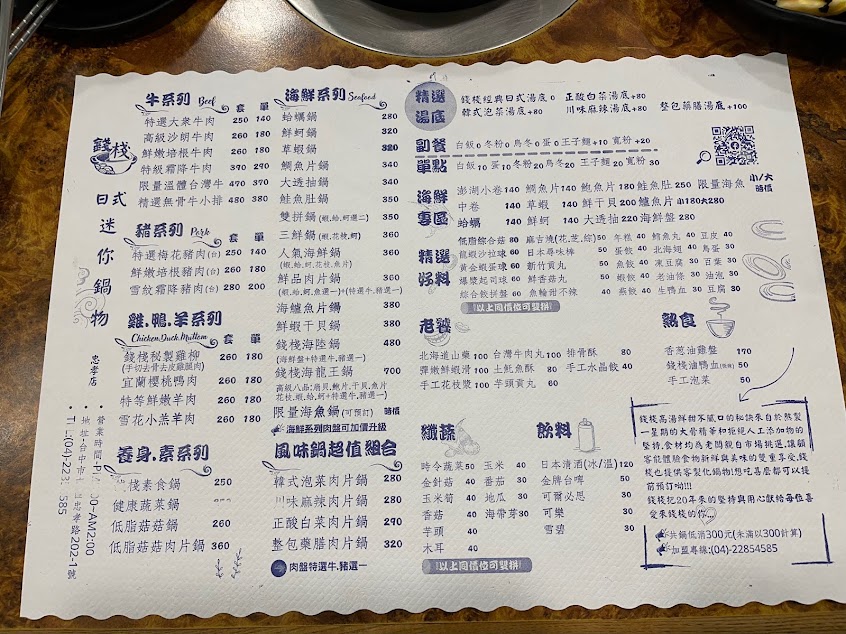 餞棧
日式迷你鍋物
忠孝店
• 營業時間-P
00-AM2:00
• 地址台中市
忠孝路202-1號
• TEL:(04)-223
585
牛系列 Beef 套 單
特選大眾牛肉 250 140
高級沙朗牛肉 260 180
鮮嫩培根牛肉 260 180
特級霜降牛肉 370 290
限量溫體台灣牛 470 370
精選無骨牛小排 480 380
豬系列 Pork 套 單
特選梅花豬肉(台) 250 140
鮮嫩培根豬肉(台) 260 180
雪紋霜降豬肉(台) 280 200
雞.鴨.羊系列
Chicken.Duck.Muttom 套 單
餞棧秘製雞柳 260 180
(手切去骨去皮雞腿肉)
宜蘭櫻桃鴨肉 260 180
特等鮮嫩羊肉 260 180
雪花小羔羊肉 260 180
養身.素系列
棧素食鍋 250
健康蔬菜鍋
低脂菇菇鍋 260
低脂菇菇肉片鍋 360
海鮮系列 Seafood
蛤蠣鍋 280
鮮蚵鍋 320
草蝦鍋 320
鯛魚片鍋 340
大透抽鍋 340
鮭魚肚鍋 350
雙拼鍋(蝦.蛤.蚵選二) 350
三鮮鍋(蝦.花枝.蚵) 350
人氣海鮮鍋 360
(蝦.蛤.蚵.花枝.魚片)
鮮品肉片鍋 300
(蝦.蛤.蚵.魚選一)+(特選牛.豬選一)
海鱸魚片鍋 380
鮮蝦干貝鍋 380
餞棧海陸鍋 480
(海鮮盤+特選牛.豬選一)
餞棧海龍王鍋 700
高級八品:扇貝.鮑片.干貝.魚片
花枝.蝦.蛤.蚵+(特選牛.豬選一)
限量海魚鍋(可預訂) 時價
海鮮系列肉盤可加價升級
風味鍋超值組合
韓式泡菜肉片鍋 280
川味麻辣肉片鍋 280
正酸白菜肉片鍋 290
整包藥膳肉片鍋 320
肉盤特選牛.豬選一
精選湯底
餞棧經典日式湯底 0 正酸白菜湯底+80
韓式泡菜湯底+80 川味麻辣湯底+80 整包藥膳湯底+100
副餐 白飯 0 冬粉 0 烏冬 0 蛋 0 王子麵+10 寬粉+20
單點 白飯 10 冬粉 20 烏冬 20 蛋 20 王子麵 20 寬粉 30
海鮮專區
小/大
澎湖小卷 140 鯛魚片 140 鮑魚片 180 鮭魚肚 250 限量海魚 時價
中卷 140 草蝦 140 鮮干貝 200 鱸魚片 小180大280
蛤蠣 140 鮮蚵 140 大透抽 220 海鮮盤 280
精選好料
低脂綜合菇 80 麻吉燒(花.芝.綜) 50 年糕 40 鱈魚丸 40 豆皮 40
龍蝦沙拉球 60 日本尋味棒 50 蛋餃 40 北海翅 40 鳥蛋 30
黃金蝦蛋球 60 新竹貢丸 50 魚餃 40 凍豆腐 30 百葉 30
爆漿起司球 60 鮮香菇丸 50 蝦餃 40 老油條 30 油泡 30
綜合餃拼盤 60 魚輪甜不辣 40 燕餃 40 生鴨血 30 豆腐 30
以上同價位可雙拼!
老饕
北海道山藥 100 台灣牛肉丸 100 排骨酥 80
彈嫩鮮蝦滑 100 土魠魚酥 80 手工水晶餃 40
手工花枝漿 100 芋頭貢丸 60
熟食
香蔥油雞盤 170
餞棧滷鴨血(微辣) 50
手工泡菜 50
纖蔬
時令蔬菜 50 玉米 40
金針菇 40 番茄 30
玉米筍 40 地瓜 30
香菇 40 海帶芽 30
芋頭 40
木耳 40
以上同價位可雙拼!
飲料
日本清酒(冰/溫) 120
金牌台啤 50
可爾必思 30
可樂 30
雪碧 30
餞棧高湯鮮甜不膩口的秘訣來自於熬製
一星期的大骨精華和拒絕人工添加物的
堅持,食材均為老闆親自市場挑選,讓顧
客能體驗食物新鮮與美味的雙重享受,餞
棧也提供客製化鍋物!想吃甚麼都可以提
前預訂喲!!!
餞棧挖20年來的堅持與用心獻給每位喜
愛來餞棧的你...
共鍋低消300元(未滿以300計算)
加盟專線:(04)-22854585